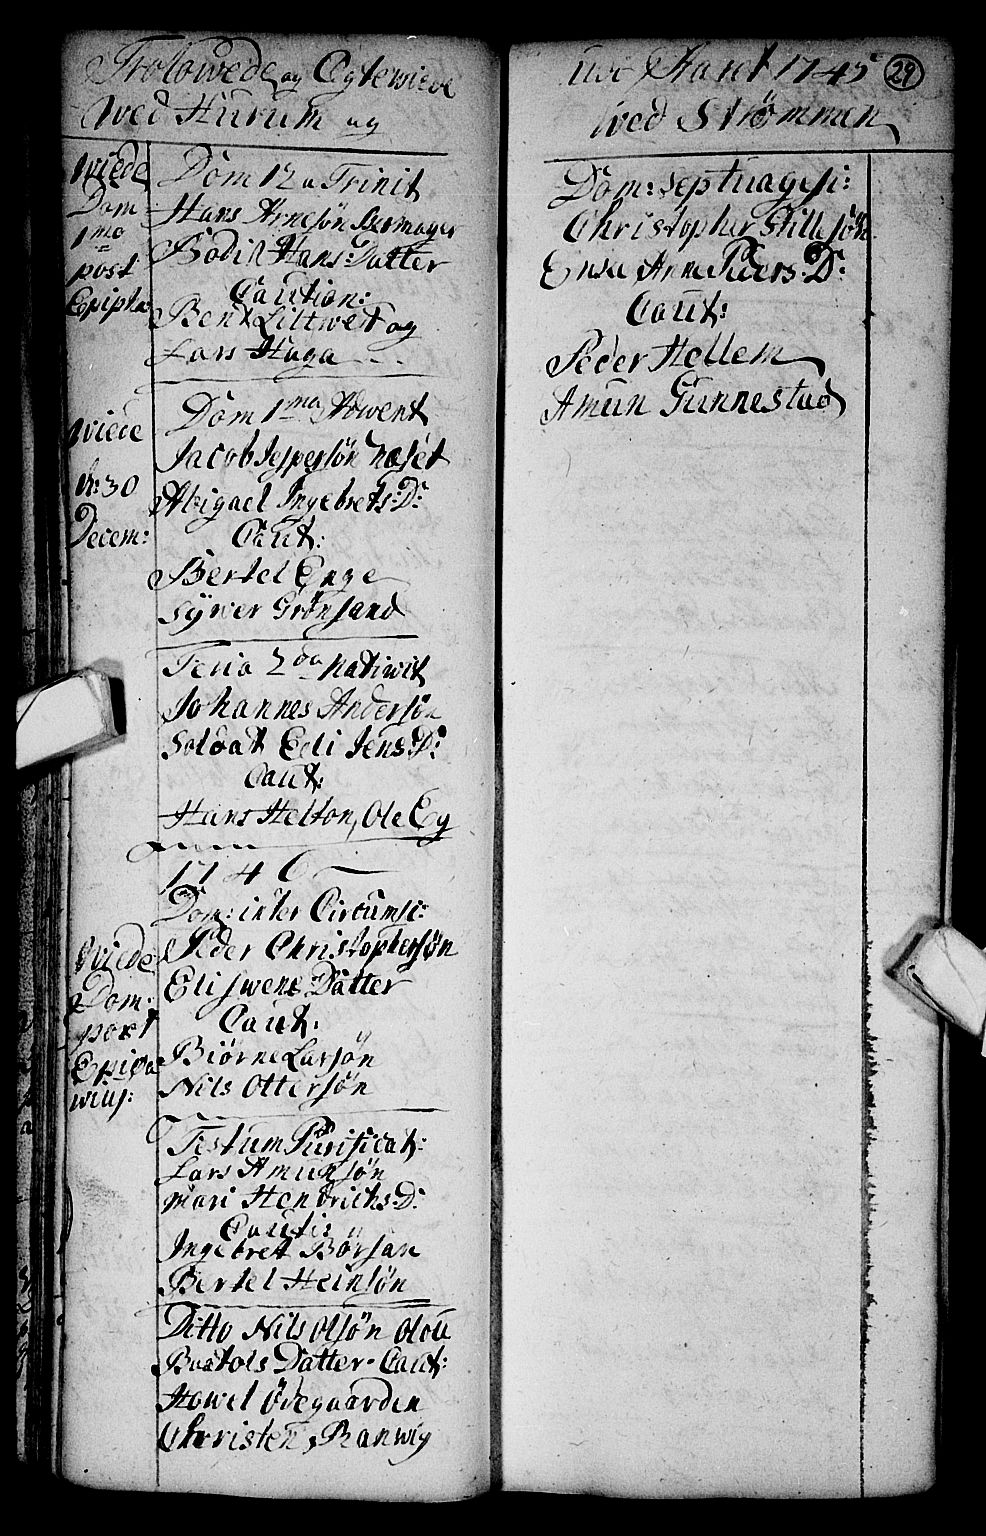 Trolowede og Ægteviede
wed Hurum og
Wiede
Dom
1mo
post
Epipha:
Dom 12 a Trinit
Hans Arnesøn
Bodil Hans: Datter
Caution:
Bent Littwet og
Lars Haga
Wiede
d: 30
Decem:
Dom 1ma Adwent
Jacob Jespersøn Næset
Abigael Ingebrets: D:
Caut:
Bertel Enge
Sywer Grønsand
Feria 2da Nativit
Johannes Andersøn
Soldat Eli Jens: D:
Caut:
Hans Helton, Ole Eg
1746
Wiede
Dom:
post
Epipha
Dom: inter Circumsi:
Peder Christophersøn
Eli Swens Datter
Caut:
Biørne Larsøn
Nils Ottersøn
Festum Purificat:
Lars Amunsøn
Mari Hendrichs: D:
Cauti:
Ingebret Børsan
Bertel Heinsøn
Ditto Nils Olsøn
Datter - Caut:
Howel Ødegaarden
Christen Ranwig
udi Aaret 1745
29
wed Strømmen
Dom: Septuagesi:
Christopher Stillesøn
Enke Anne Peders D:
Caut:
Peder Hellem
Amun Gunnestad